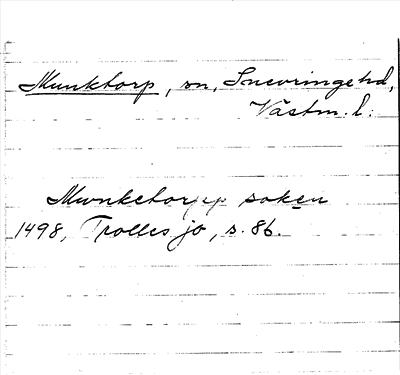 Munktorp, sn, Snevringe hd,
Västm. l.
Mwnketorpp soken
1498, Trolles jo, s. 86.